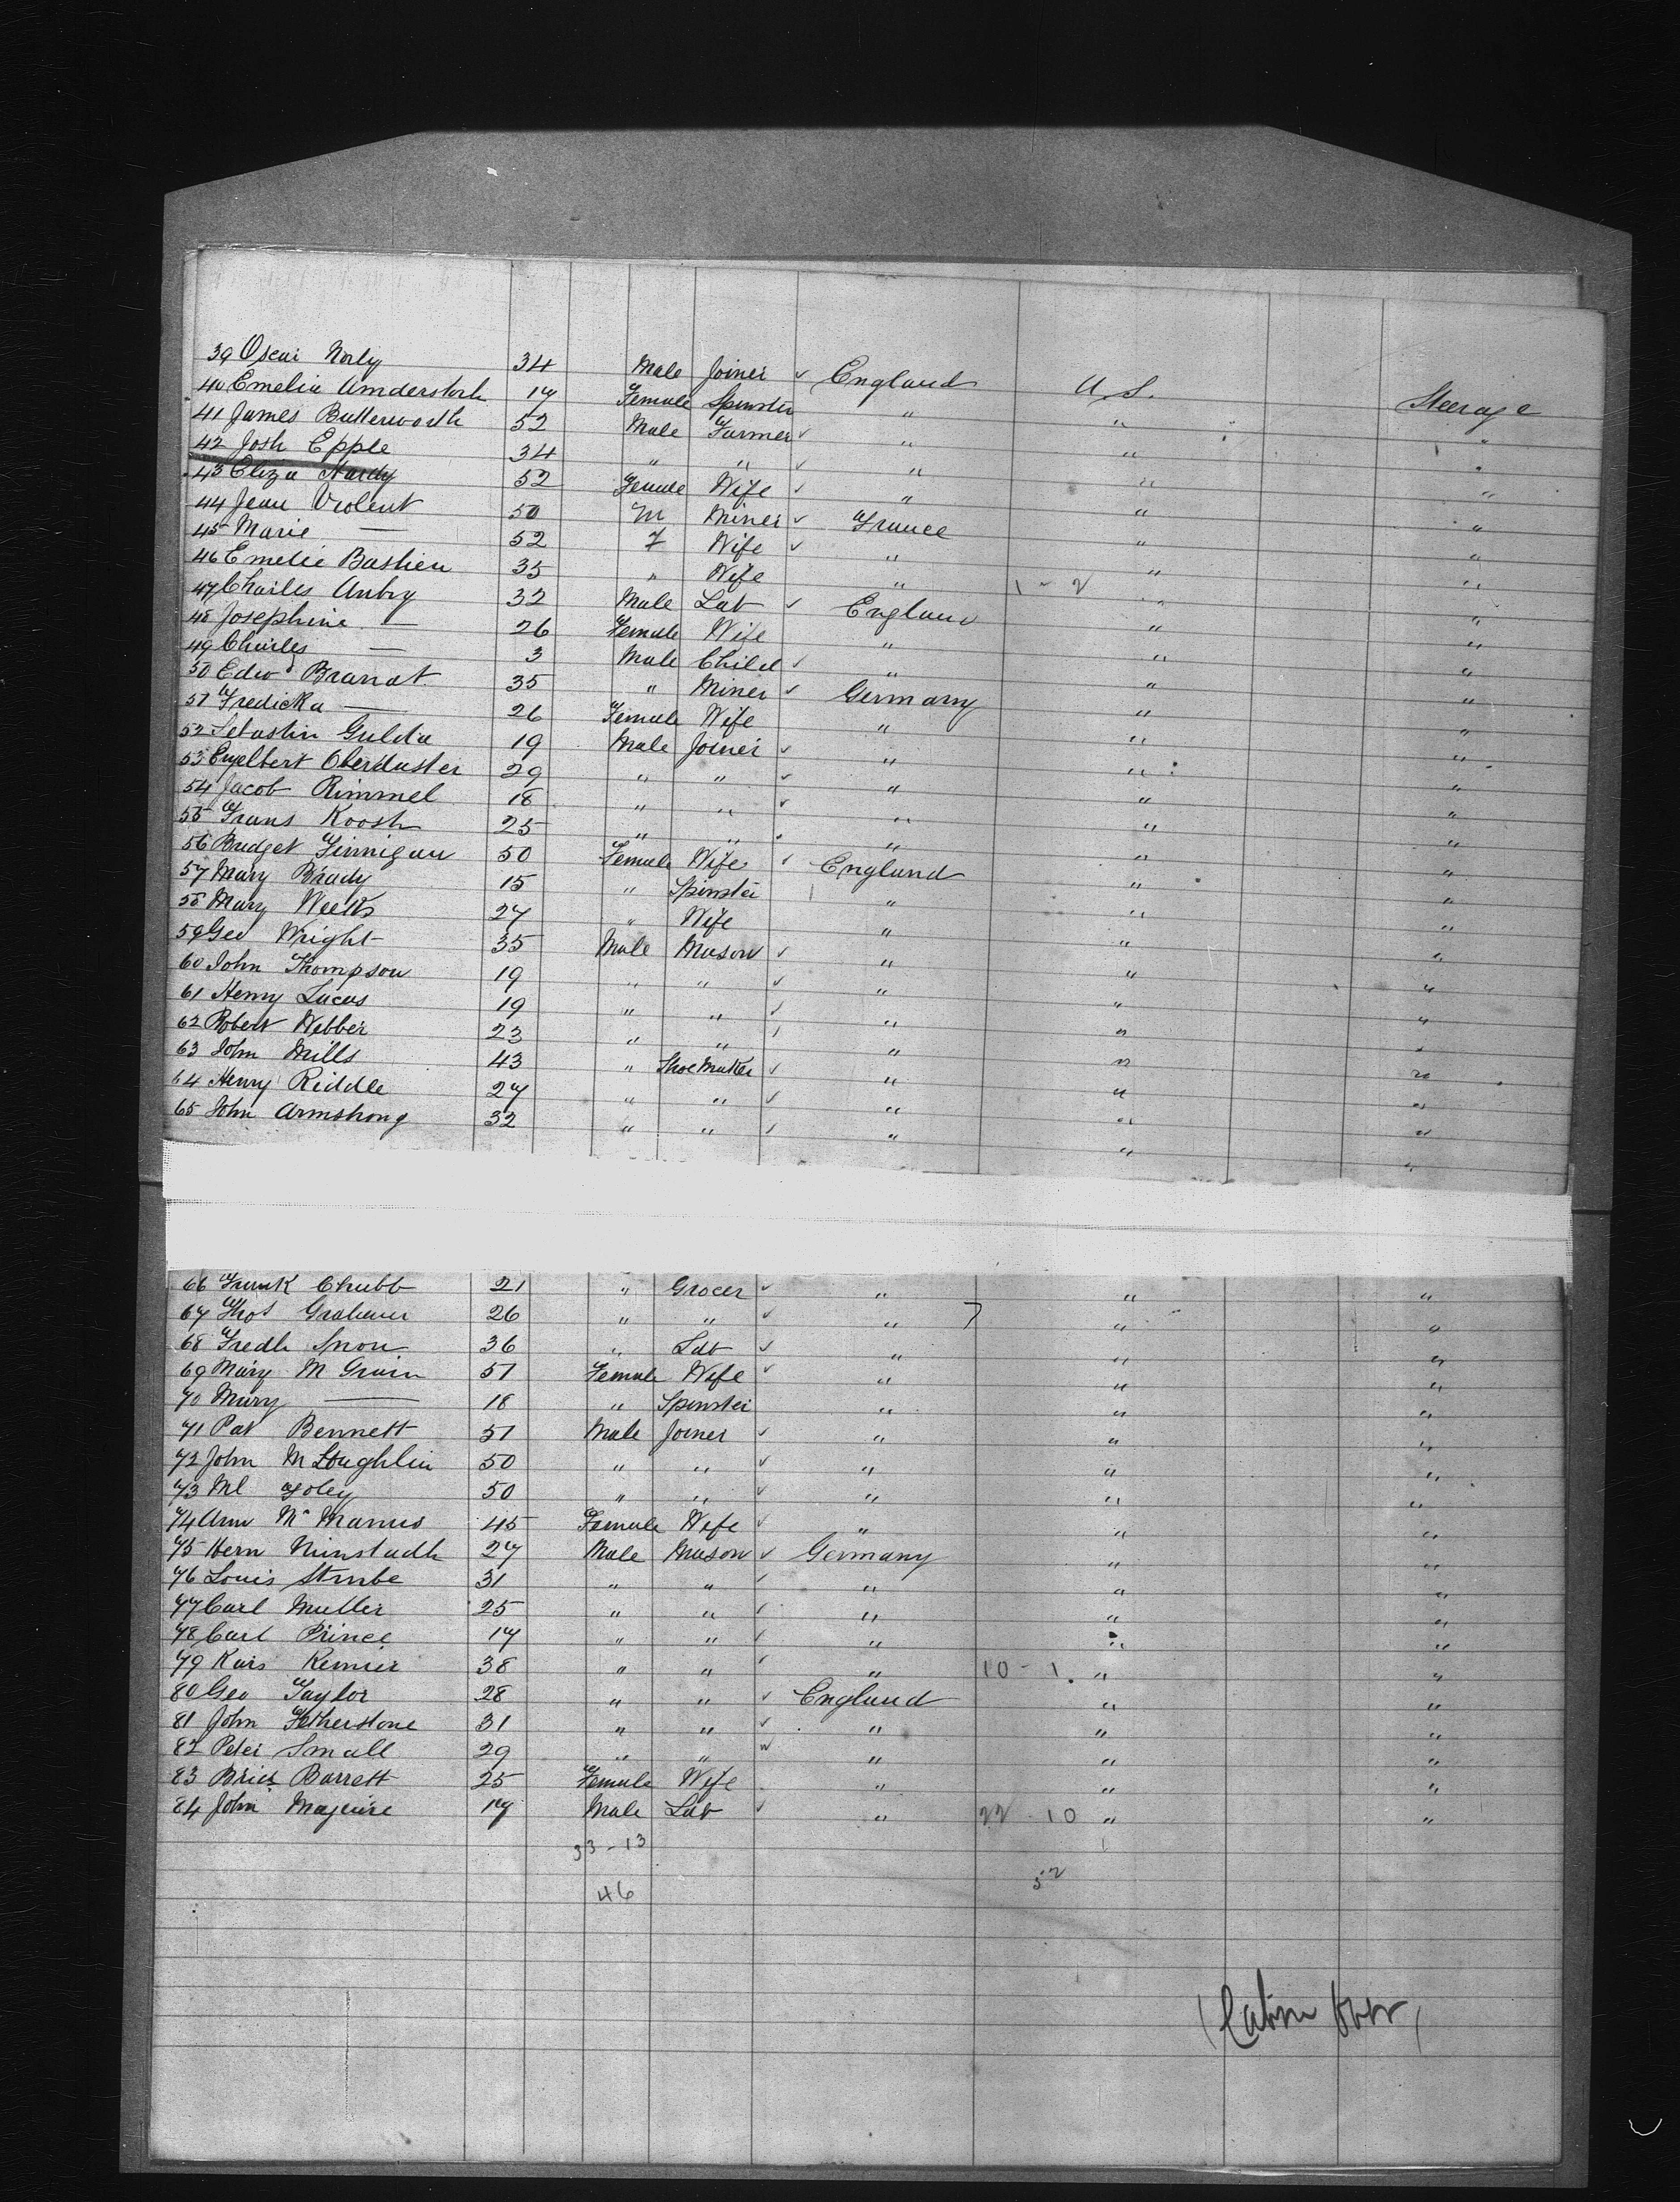 39 Oscar Norly 34 Male Joiner ✓ England U.S. Steerage
40 Emelia 17 Female Spinster " " "
41 James Butterworth 52 Male Farmer ✓ " " "
42 Josh Epple 34 " " ✓ " " "
43 Eliza Hardy 52 Female Wife ✓ " " "
44 Jean Violent 50 M Miner ✓ France " "
45 Marie — 52 F Wife ✓ " " "
46 Emelie Bastien 35 " Wife " 1 - 2 " "
47 Charles Aubry 32 Male Lab ✓ England " "
48 Josephine — 26 Female Wife " " "
49 Charles — 3 Male Child ✓ " " "
50 Edwd Brandt 35 " Miner ✓ Germany " "
51 Fredicka — 26 Female Wife " " "
52 Sebastin Gulda 19 Male Joiner ✓ " " "
53 Engelbert Oberduster 29 " " ✓ " " "
54 Jacob Rimmel 18 " " ✓ " " "
55 Frans Koosh 25 " " " " "
56 Bridget Finnigan 50 Female Wife ✓ England " "
57 Mary Brady 15 " Spinster " " "
58 Mary Weeks 27 " Wife " " "
59 Geo Wright 35 Male Mason ✓ " " "
60 John Thompson 19 " " ✓ " " "
61 Henry Lucas 19 " " ✓ " " "
62 Robert Webber 23 " " ✓ " " "
63 John Mills 43 " Shoe Maker ✓ " " "
64 Henry Riddle 27 " " ✓ " " "
65 John Armstrong 32 " " ✓ " " "
66 Frank Chubb 21 " Grocer ✓ " " "
67 Thos Grahamer 26 " " ✓ " 7 " "
68 Fredk Snow 36 " Lab ✓ " " "
69 Mary M Grain 51 Female Wife ✓ " " "
70 Mary — 18 " Spinster " " "
71 Pat Bennett 51 Male Joiner ✓ " " "
72 John M Loughlin 50 " " ✓ " " "
73 Ml Foley 50 " " ✓ " " "
74 Ann Mc Manus 45 Female Wife ✓ " " "
75 Hern Nunstadh 27 Male Mason ✓ Germany " "
76 Louis Strube 31 " " ✓ " " "
77 Carl Muller 25 " " ✓ " " "
78 Carl Prince 17 " " ✓ " " "
79 Kars 38 " " ✓ " 10 - 1 " "
80 Geo Taylor 28 " " ✓ England " "
81 John Fetherstone 31 " " ✓ " " "
82 Peter Small 29 " " " " "
83 Barrett 25 Female Wife " " "
84 John Maguire 17 Male Lab ✓ " 22 - 10 " "
33 - 13 1
46 52
(Cabin Over)